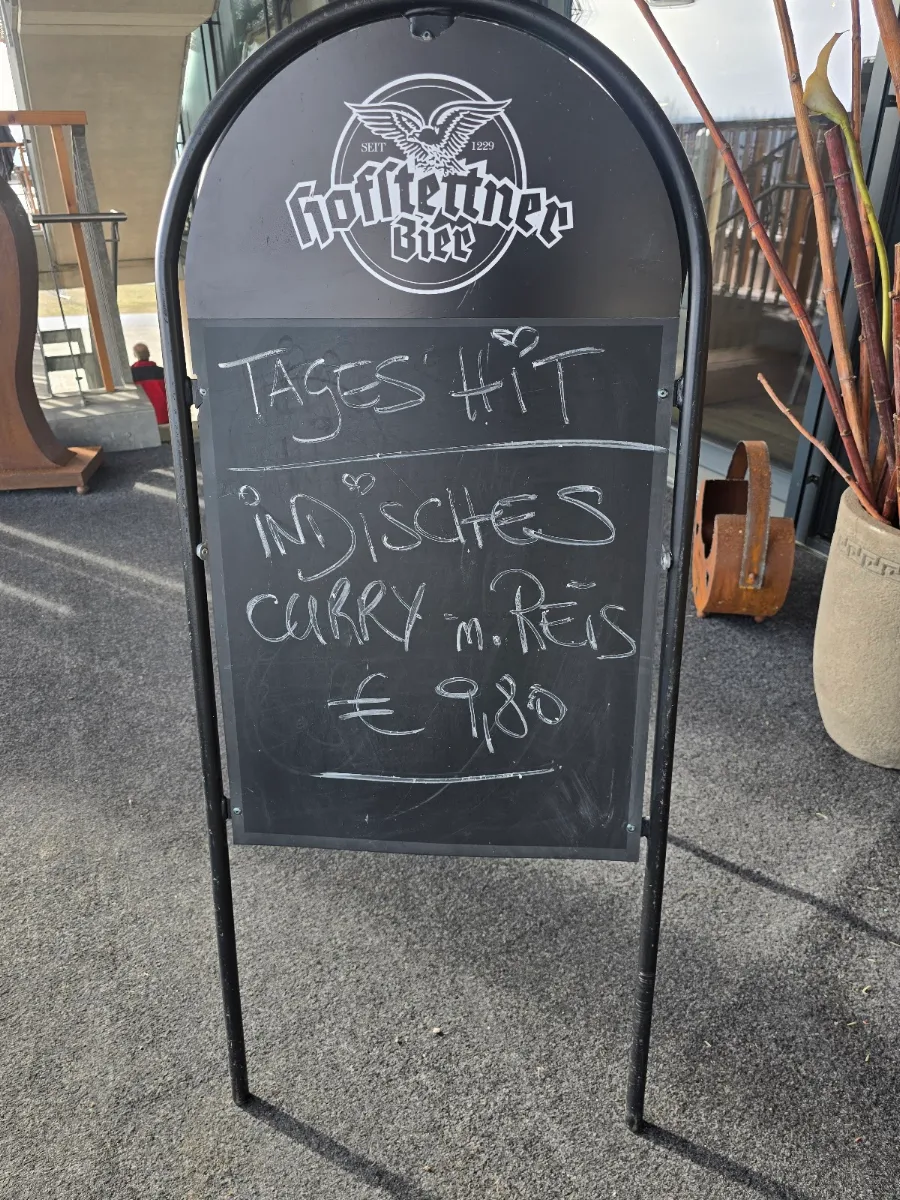 SEIT 1229
Hofstettner
Bier
TAGES HiT
iNDiSCHES
CURRY m. REiS
€ 9,80